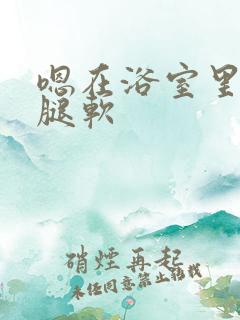 嗯在浴室里
腿软
硝煙再起
未经同意禁止转载